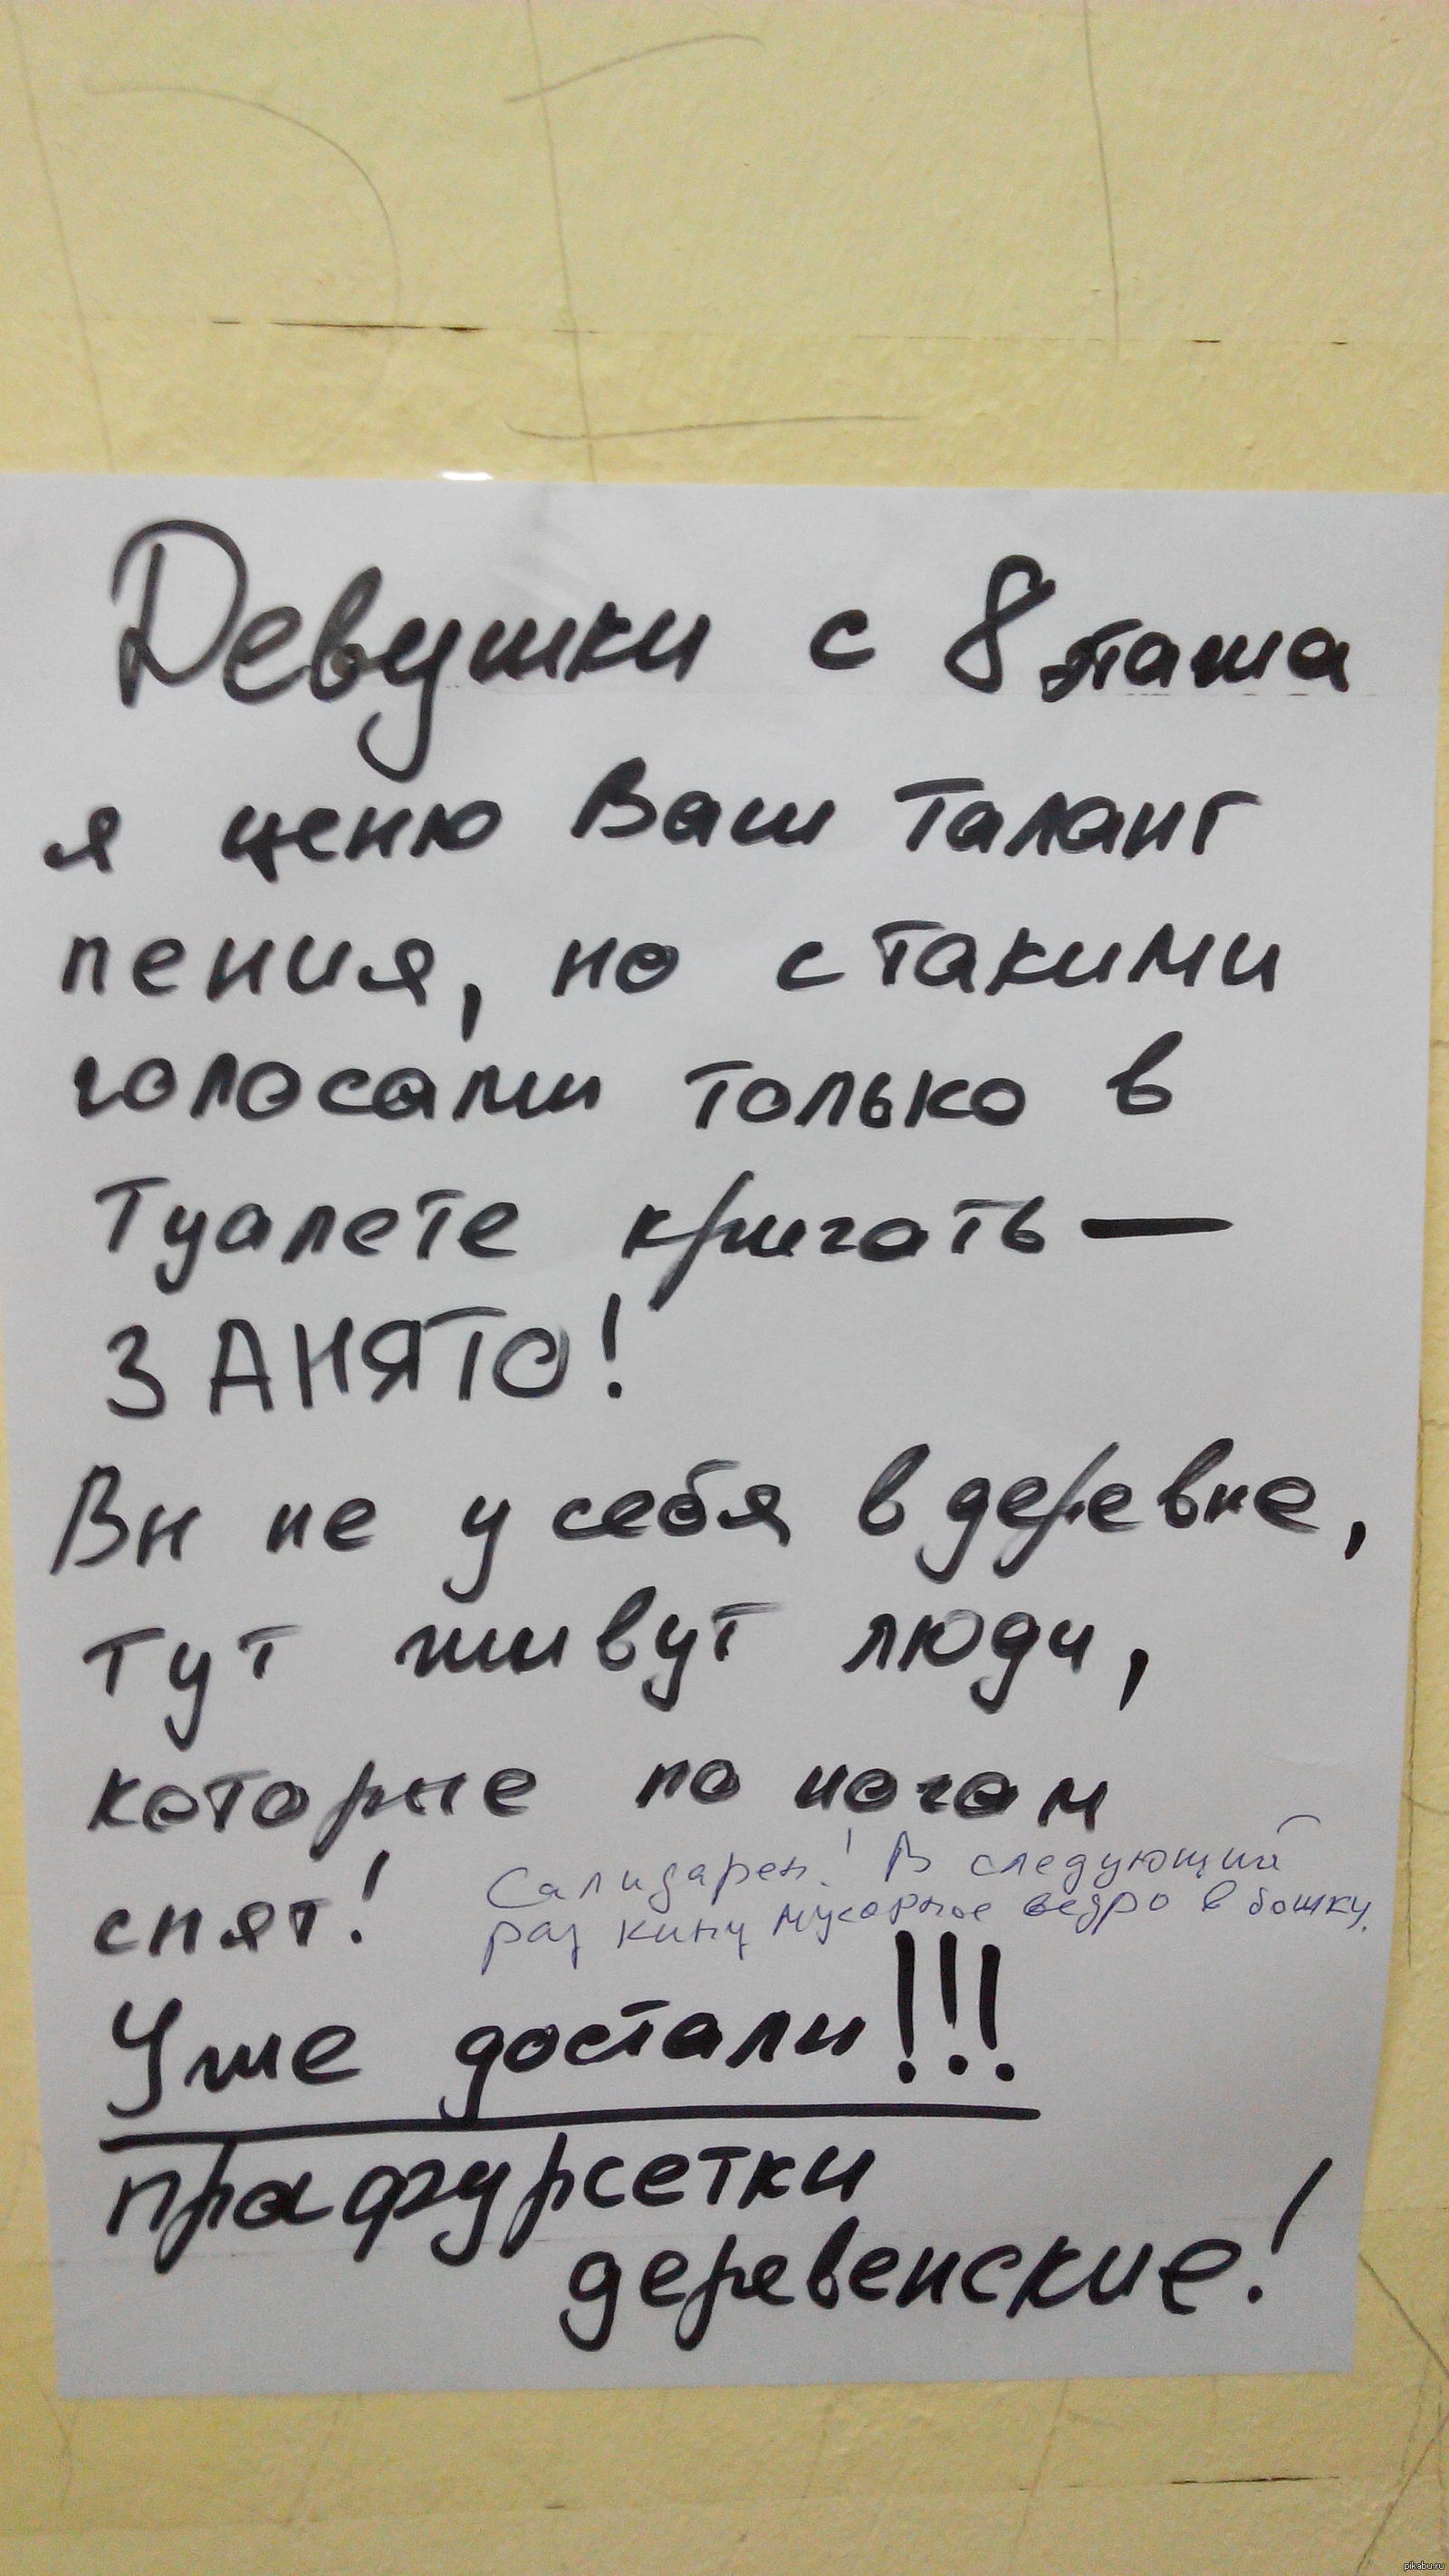 Девушки с 8 этажа
я ценю Ваш талант
пения, но с такими
голосами только в
туалете кричать —
ЗАНЯТО!
Вы не у себя в деревне,
тут живут люди,
которые по ночам
спят!
Салидарен! В следующий
раз кину мусорное ведро в бошку.
Уже достали!!!
прафурсетки
деревенские!
pikabu.ru